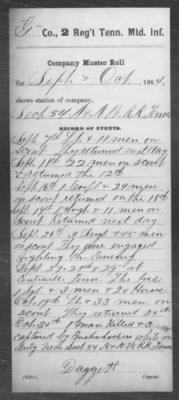 G Co., 2 Reg't Tenn. Mtd. Inf.
Company Muster Roll
for Sept. & Oct., 1864,
shows station of company,
Sect. 54 N & N W R R Tenn
RECORD OF EVENTS.
Sept. 7th & 11 men on
scout They returned next day
Sept. 11th 22 men on scout
& returned the 12th
Sept. 16th 1 Corpl & 24 men
on scout returned on the 18th
Sept. 19th 1 & 11 men on
scout returned next day
Sept. 26th 3 & 45 men
on scout They were engaged
fighting the Enemy
Sept. 27. 28th & 29th at
Centreville Tenn. The loss
1 men & 2 Horses
Oct. 19th Lt & 33 men on
scout They returned 24th
Oct. 30th 1 man Killed & 3
captured by Bushwhackers while on
duty near Sect 54 N & N W R R Tenn
Daggett